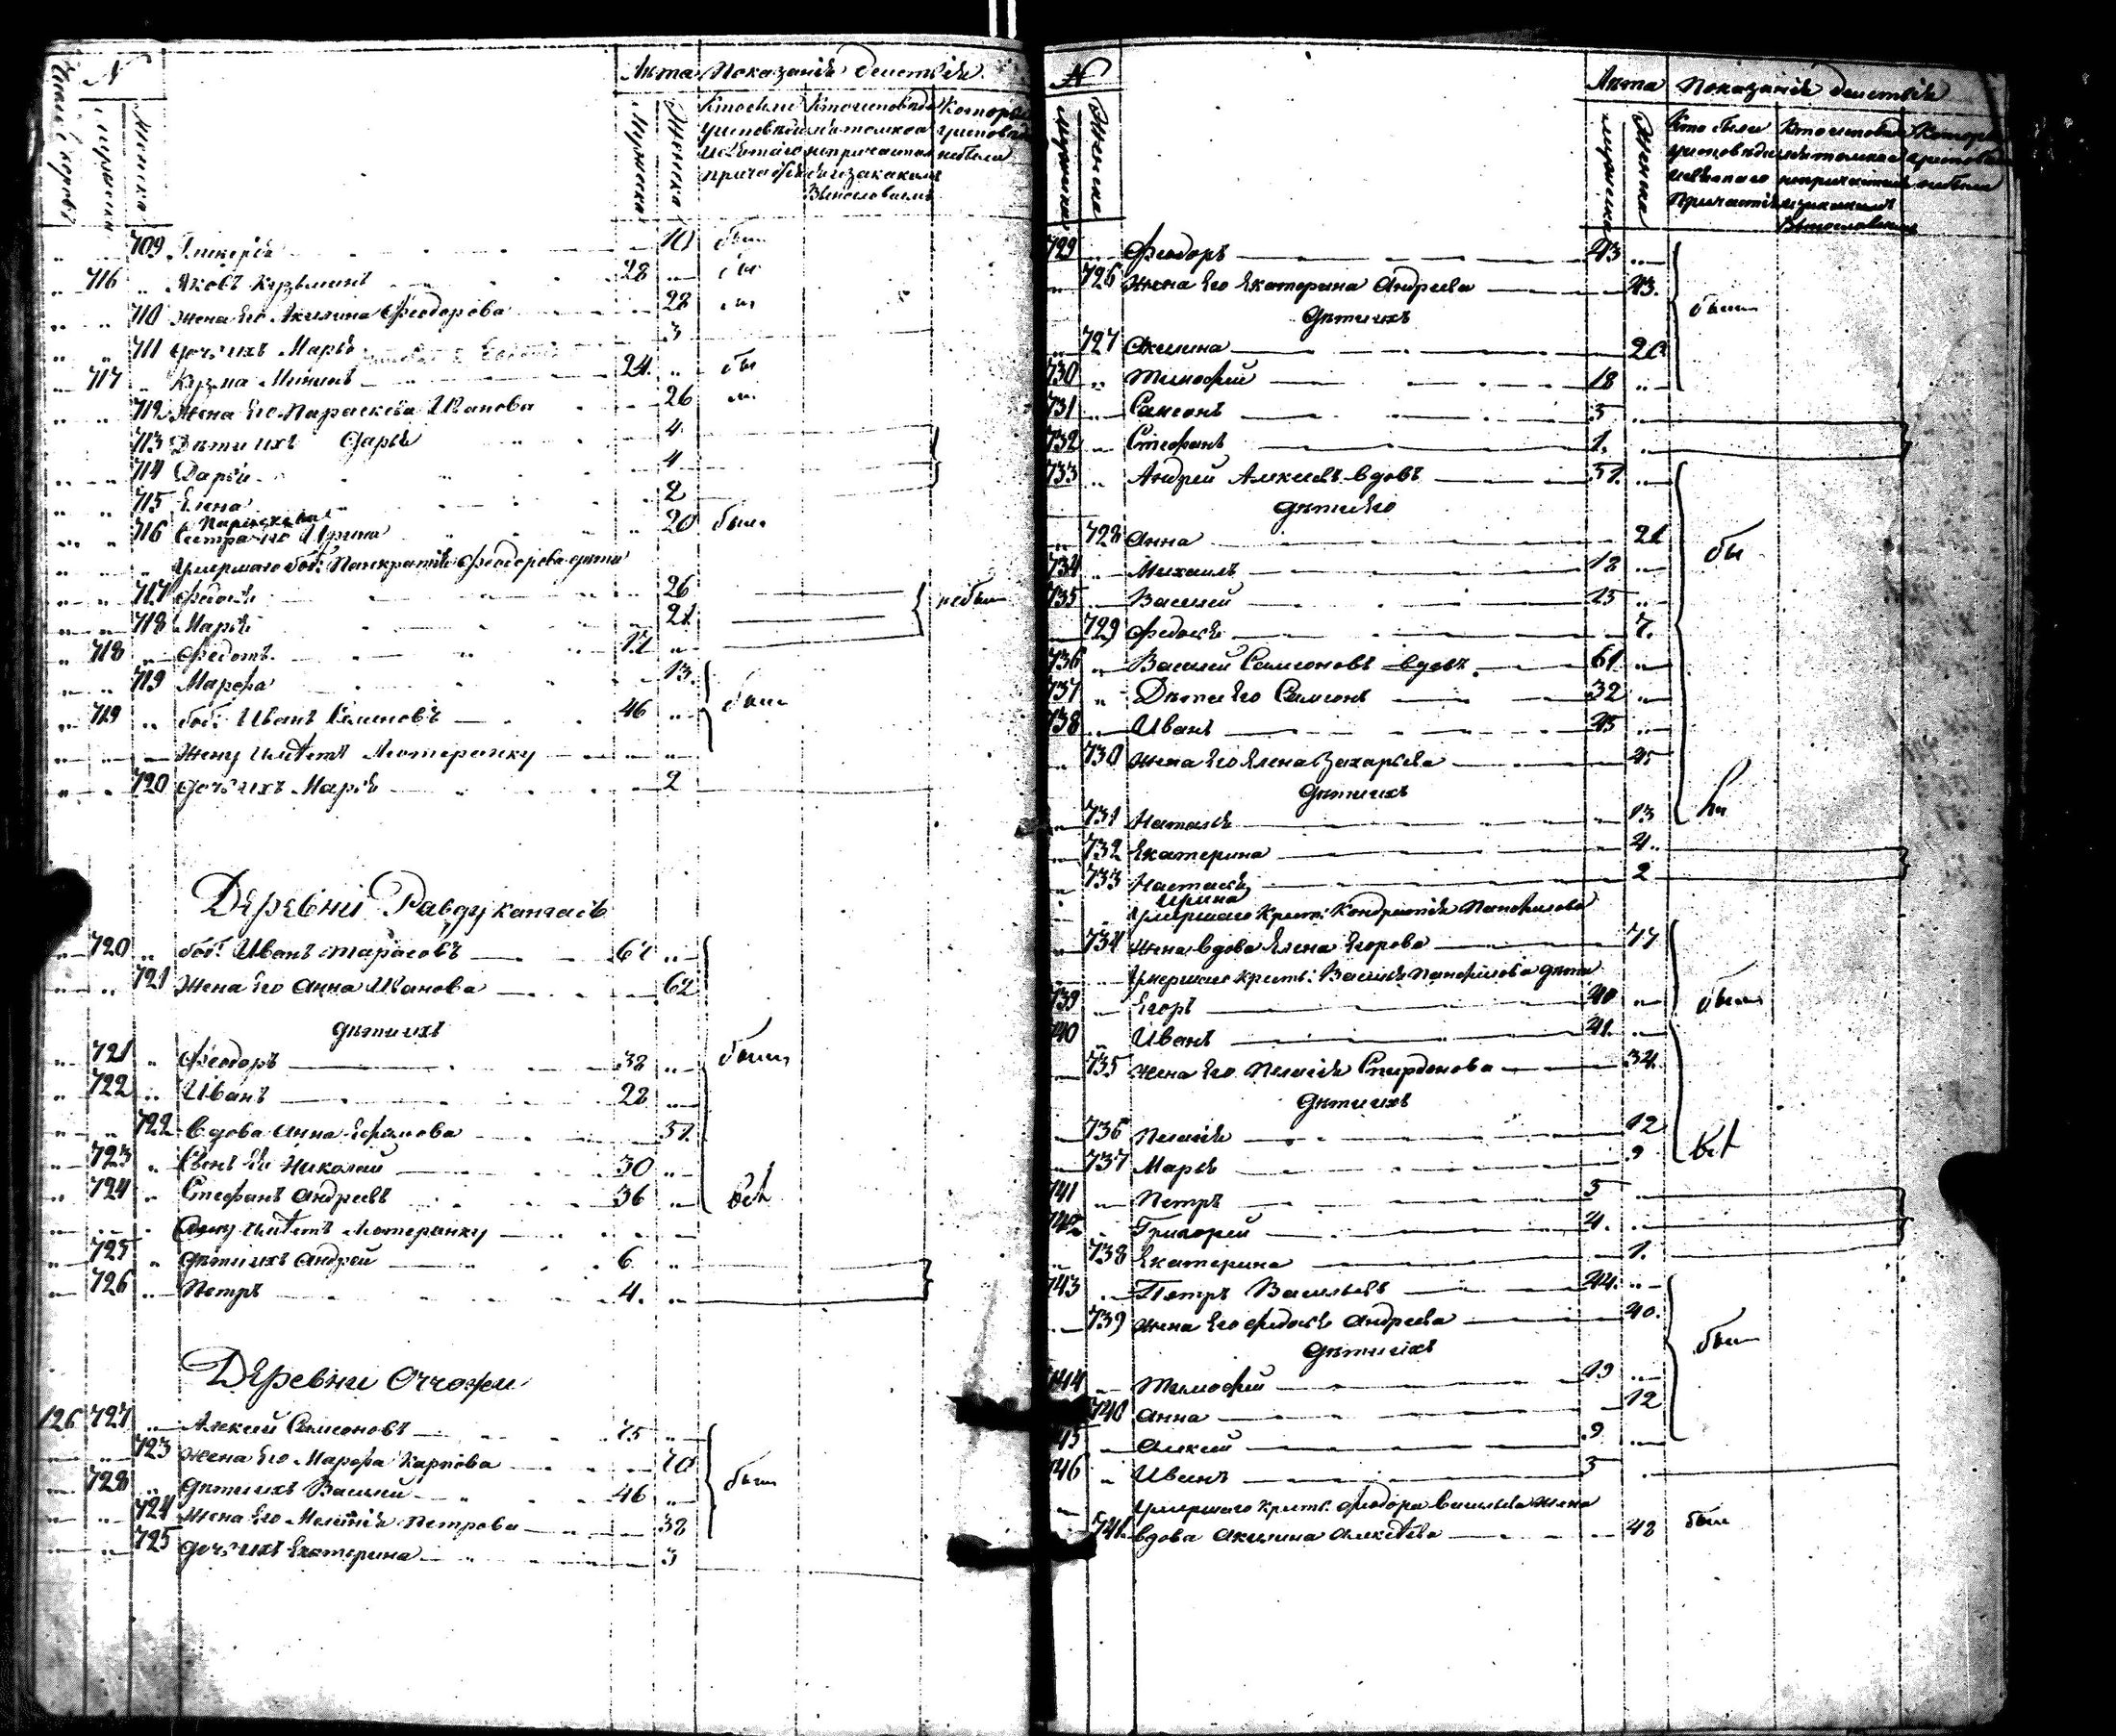 Число дворовъ
N
мужеска
Женска
Лѣта
Показанiе бытiя
мужеска
Женска
Кто были у исповѣди и святаго причастiя
Кто исповѣдался токмо а не причастился и за какимъ винословiемъ
Которые у исповѣди не были
709 Гликерiя 10 были
716 Яковъ Кузьминъ 28
710 жена Его Акилина Феодорова 28
711 дочь ихъ Марья 3
717 Кузма Мининъ 24
712 жена Его Параскева Иванова 26
713 Дѣти ихъ Дарья 4
714 Дарья 4
715 Елена 2
Параскева
716 Сестра его Ирина 20 были
умершаго боб: Панкратiя Феодорова дѣти
717 Федосья 26
718 Марья 21 небыли
718 Федотъ 17
719 Марфа 13
719 боб: Иванъ Семеновъ 46 были
Жену имѣетъ Лютеранку
720 дочь ихъ Марiя 2
Деревни Равдукангасъ
720 боб: Иванъ Тарасовъ 67
721 Жена Его Анна Иванова 62
дѣти ихъ
721 Феодоръ 38 были
722 Иванъ 28
722 вдова Анна Ефимова 57
723 Сынъ Ея Николай 30
724 Стефанъ Андреевъ 36 всѣ
Жену имѣетъ Лютеранку
725 дѣти ихъ Андрей 6
726 Петръ 4
Деревни
126 727 Алексий Самсоновъ 75
723 Жена Его Марфа Карпова 70
728 дѣти ихъ Василий 46 были
724 Жена Его Петрова 38
725 дочь ихъ Екатерина 3
N
мужеска
Женска
Лѣта
Показанiе бытiя
мужеска
Женска
Кто были у исповѣди и святаго причастiя
Кто исповѣдался токмо а не причастился и за какимъ винословiемъ
Которые у исповѣди не были
729 Феодоръ 43
726 жена Его Екатерина Андреева 43 были
дѣти ихъ
727 Акилина 20
730 Тимофей 18
731 Самсонъ 5
732 Стефанъ 1
733 Андрей Алексеевъ вдовъ 51
дѣти Его
728 Анна 21
734 Михаилъ 18
735 Василей 15
729 Федосья 7
736 Василей Самсоновъ вдовъ 61
737 Дѣти Его Самсонъ 32
738 Иванъ 45
730 жена Его Елена Захарьева 45
дѣти ихъ
731 Наталья 13
732 Екатерина 4
733 Настасья 2
Ирина
умершаго крест: Кондратiя Панфилова
734 жена вдова Елена Егорова 77
умершаго крест: Василья Панфилова дѣти
739 Егоръ 40 были
740 Иванъ 41
735 жена Его Пелагiя Спирдонова 34
дѣти ихъ
736 Пелагiя 12
737 Марья 9 всѣ
741 Петръ 5
742 Григорей 4
738 Екатерина 1
743 Петръ Васильевъ 44
739 жена Его Федосья Андреева 40
дѣти ихъ были
744 Тимофей 19
740 Анна 12
745 Алексей 9
746 Иванъ 5
умершаго крест: Феодора Васильева жена
741 вдова Акилина Алексѣева 48 были